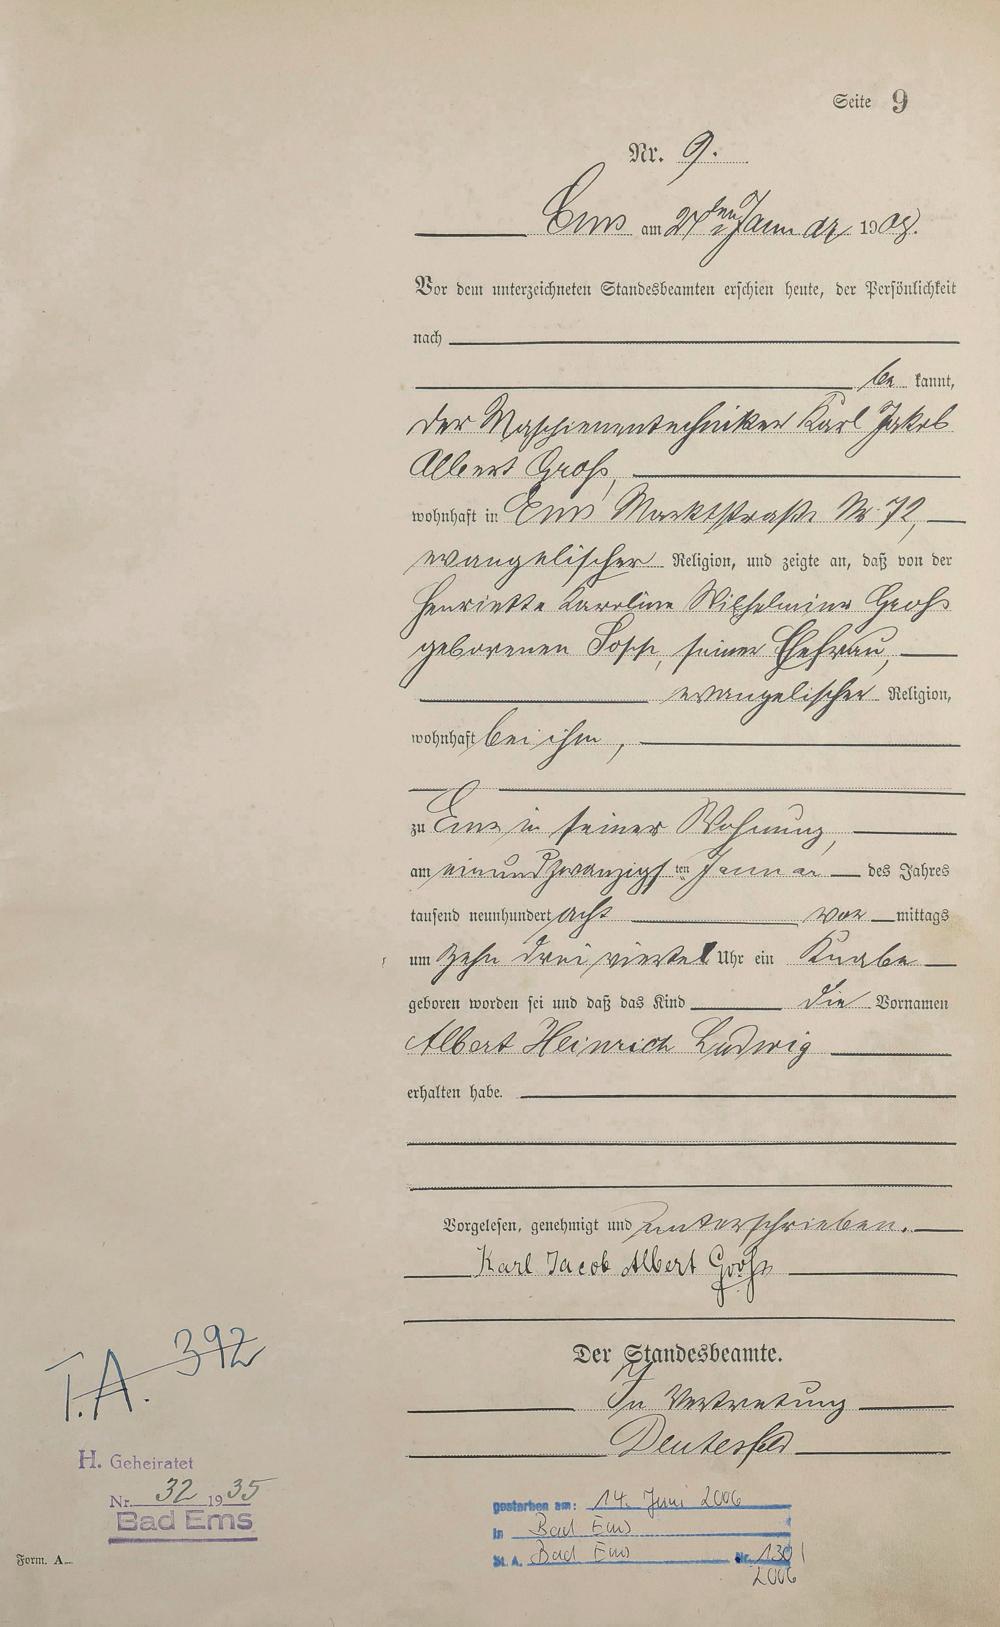 Seite 9
Nr. 9.
Ems am 27ten Januar 1908.
Vor dem unterzeichneten Standesbeamten erschien heute, der Persönlichkeit
nach
be kannt,
der Maschienentechniker Karl Jakob
Albert Groß,
wohnhaft in Ems Marktstraße Nr 72,
evangelischer Religion, und zeigte an, daß von der
Henriette Karoline Wilhelmine Groß
geborenen seiner Ehefrau,
evangelischer Religion,
wohnhaft bei ihm,
zu Ems in seiner Wohnung,
am einundzwanzigsten Januar des Jahres
tausend neunhundert acht vor mittags
um zehn drei viertel Uhr ein Knabe
geboren worden sei und daß das Kind die Vornamen
Albert Heinrich Ludwig
erhalten habe.
Vorgelesen, genehmigt und unterschrieben.
Karl Jacob Albert Groß
Der Standesbeamte.
In Vertretung
T.A. 392
H. Geheiratet
Nr. 32 1935
Bad Ems
gestorben am: 14. Juni 2006
in Bad Ems
St. A. Bad Ems Nr. 130/
2006
Form. A.